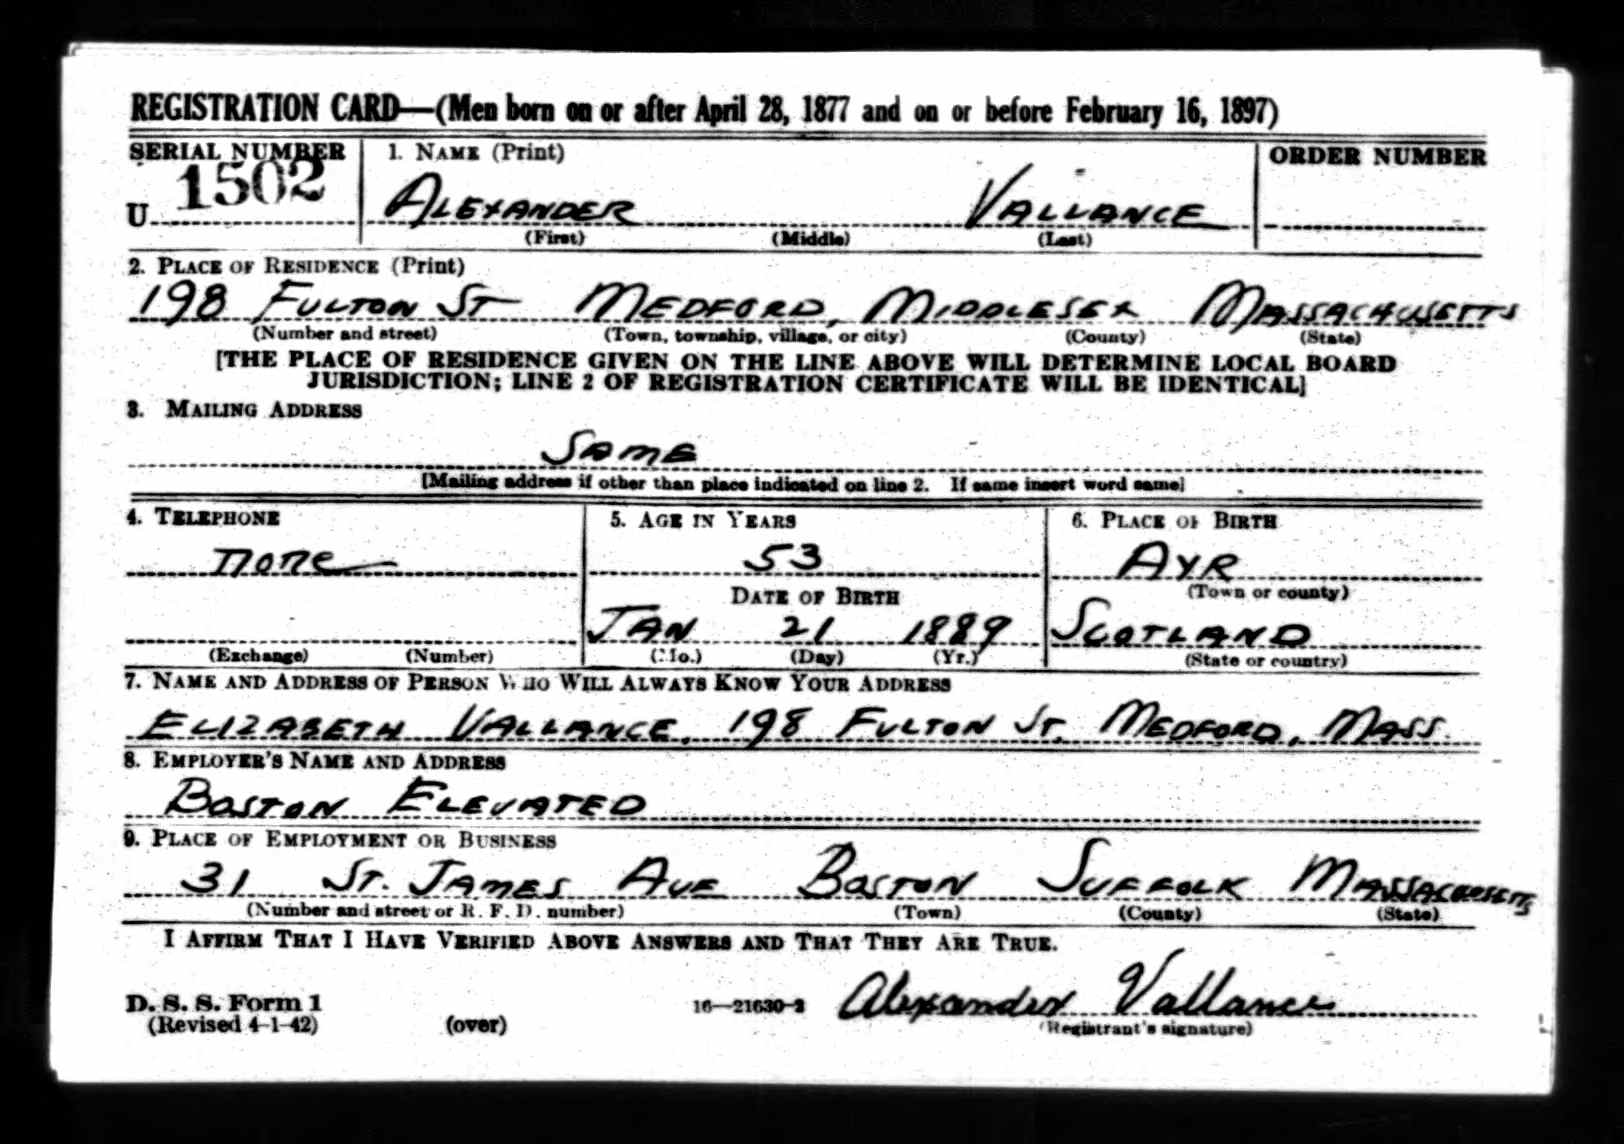 REGISTRATION CARD—(Men born on or after April 28, 1877 and on or before February 16, 1897)
SERIAL NUMBER 1. NAME (Print) ORDER NUMBER
U 1502 ALEXANDER VALLANCE
(First) (Middle) (Last)
2. PLACE OF RESIDENCE (Print)
198 FULTON ST MEDFORD, MIDDLESEX MASSACHUSETTS
(Number and street) (Town, township, village, or city) (County) (State)
[THE PLACE OF RESIDENCE GIVEN ON THE LINE ABOVE WILL DETERMINE LOCAL BOARD
JURISDICTION; LINE 2 OF REGISTRATION CERTIFICATE WILL BE IDENTICAL]
3. MAILING ADDRESS
SAME
[Mailing address if other than place indicated on line 2. If same insert word same]
4. TELEPHONE 5. AGE IN YEARS 6. PLACE OF BIRTH
none 53 AYR
DATE OF BIRTH (Town or county)
JAN 21 1889 SCOTLAND
(Exchange) (Number) (Mo.) (Day) (Yr.) (State or country)
7. NAME AND ADDRESS OF PERSON WHO WILL ALWAYS KNOW YOUR ADDRESS
ELIZABETH VALLANCE, 198 FULTON ST. MEDFORD, MASS.
8. EMPLOYER'S NAME AND ADDRESS
BOSTON ELEVATED
9. PLACE OF EMPLOYMENT OR BUSINESS
31 ST. JAMES AVE BOSTON SUFFOLK MASSACHUSETTS
(Number and street or R. F. D. number) (Town) (County) (State)
I AFFIRM THAT I HAVE VERIFIED ABOVE ANSWERS AND THAT THEY ARE TRUE.
D. S. S. Form 1 16—21630-2 Alexander Vallance
(Revised 4-1-42) (over) (Registrant's signature)